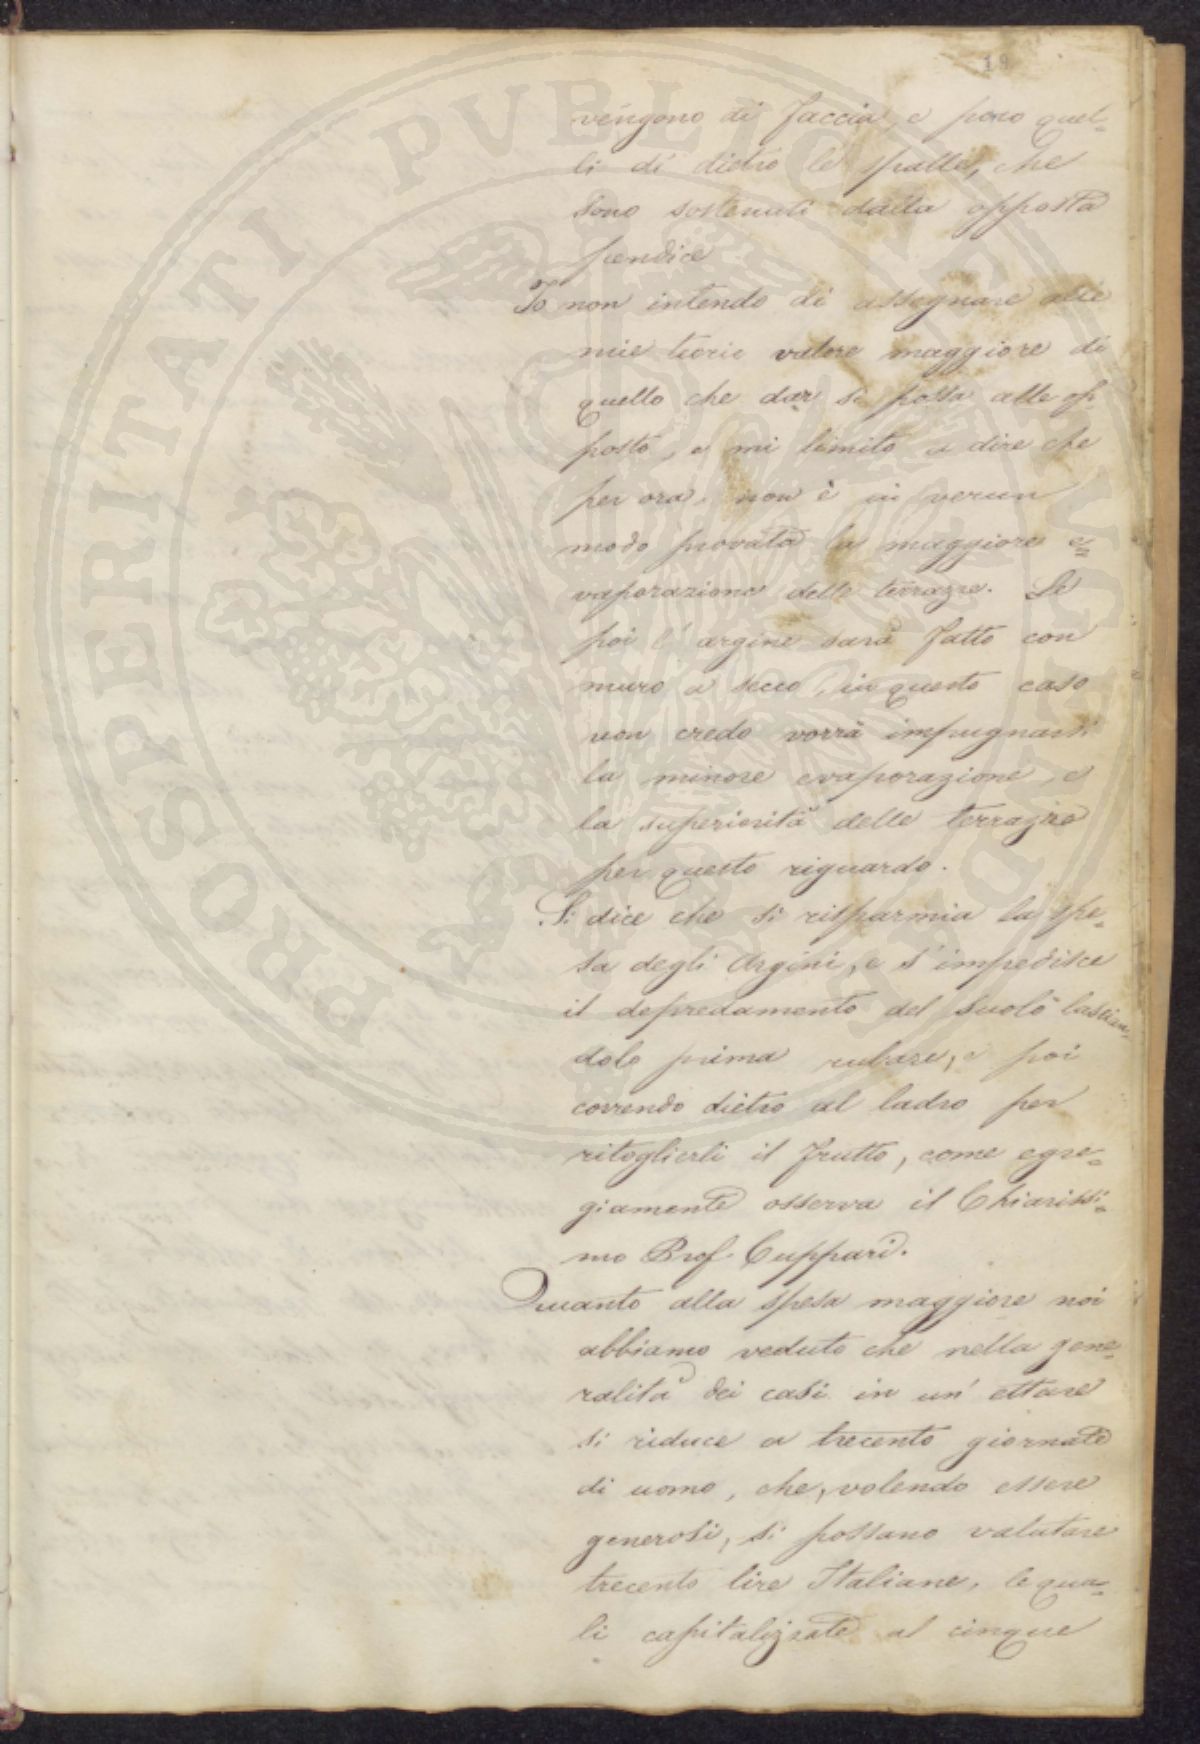 19
vengono di faccia, e poco quel-
li di dietro le spalle, che
sono sostenuti dalla opposta
pendice
Io non intendo di assegnare alle
mie teorie valore maggiore di
quello che dar si possa alle op-
poste, e mi limito a dire che
per ora, non è in verun
modo provata la maggiore e-
vaporazione delle terrazze. Se
poi l'argine sarà fatto con
muro a secco, in questo caso
non credo vorrà impugnarsi
la minore evaporazione, e
la superiorità delle terrazze
per questo riguardo.
Si dice che si risparmia la spe-
sa degli Argini, e s'impedisce
il depredamento del suolo lascian-
dolo prima rubare, e poi
correndo dietro al ladro per
ritoglierli il frutto, come egre-
giamente osserva il Chiarissi-
mo Prof. Cuppari.
Quanto alla spesa maggiore noi
abbiamo veduto che nella gene-
ralità dei casi in un' ettare
si riduce a trecento giornate
di uomo, che, volendo essere
generosi, si possano valutare
trecento lire Italiane, le qua-
li capitalizzate al cinque
PROSPERITATI PVBLICAE AVGENDAE